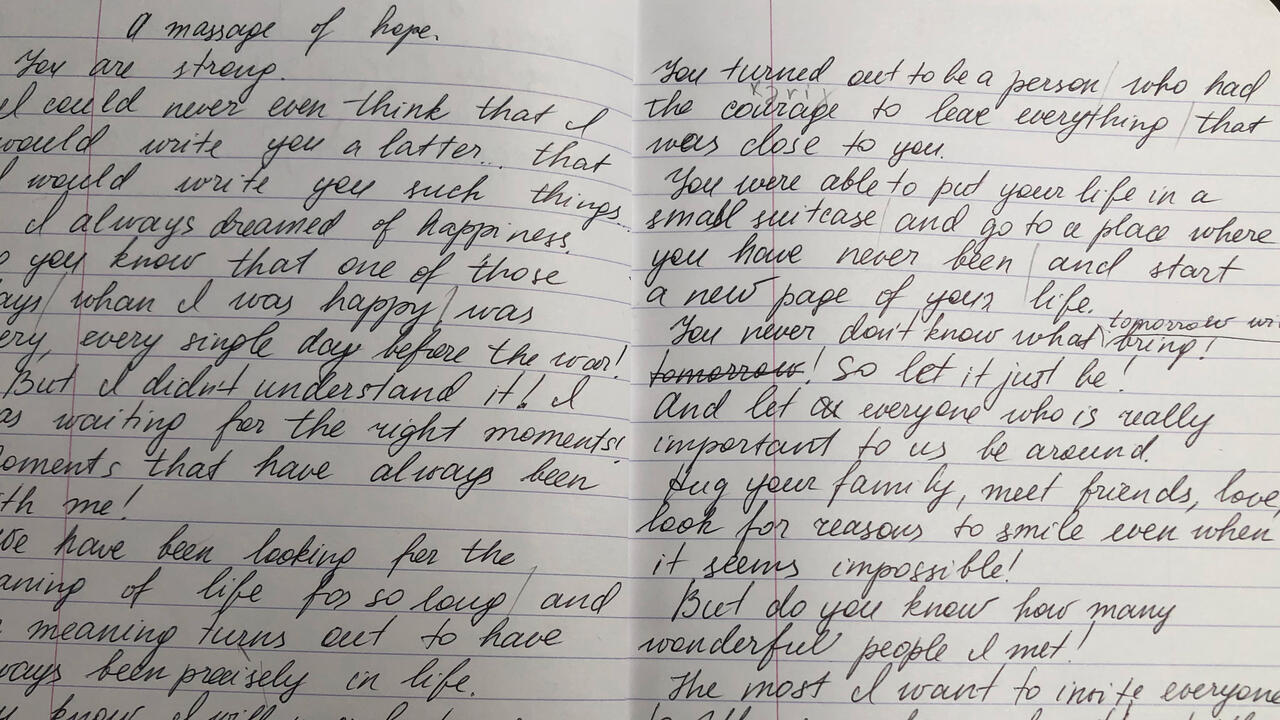 A massage of hope.
You are strong.
I could never even think that I
would write you a latter... that
I would write you such things...
I always dreamed of happiness.
you know that one of those
ays whan I was happy was
ery, every single day before the war!
But I didn't understand it! I
as waiting for the right moments!
oments that have always been
th me!
We have been looking for the
aning of life for so long and
meaning turns out to have
ways been precisely in life.
know I will
You turned out to be a person who had
the courage to leave everything that
was close to you.
You were able to put your life in a
small suitcase and go to a place where
you have never been and start
a new page of your life.
You never don't know what tomorrow
bring!
tomorrow! So let it just be!
And let everyone who is really
important to us be around.
Hug your family, meet friends, love,
look for reasons to smile even when
it seems impossible!
But do you know how many
wonderful people I met!
The most I want to invite everyone